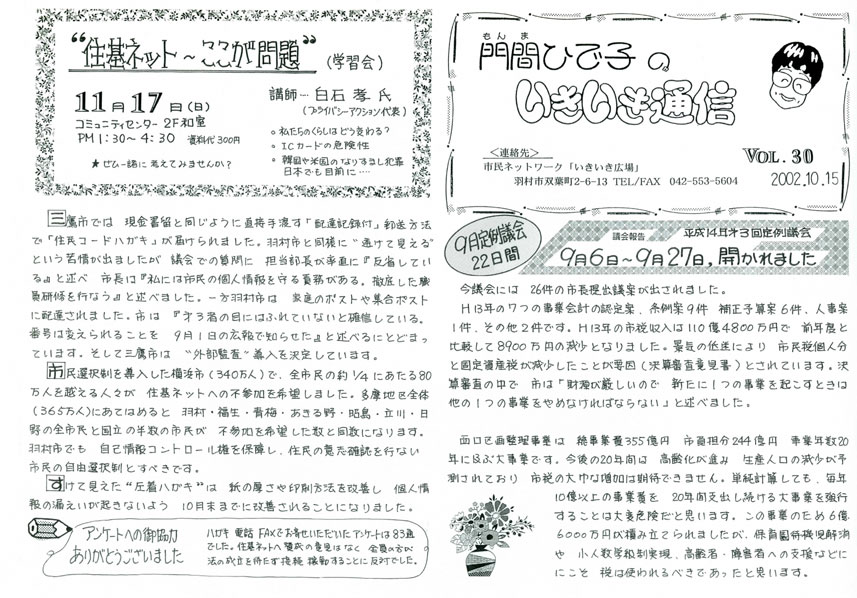 門間ひで子の
もんま
いきいき通信
＜連絡先＞
市民ネットワーク「いきいき広場」
羽村市双葉町2-6-13 TEL/FAX 042-553-5604
VOL.30
2002.10.15
9月定例議会
22日間
議会報告
平成14年第3回定例議会
9月6日～9月27日,開かれました
今議会には 26件の市長提出議案が出されました。
H13年の7つの事業会計の認定案、条例案9件 補正予算案6件、人事案
1件、その他2件です。H13年の市税収入は110億4800万円で 前年度と
比較して8900万円の減少となりました。景気の低迷により 市民税個人分
と固定資産税が減少したことが要因(決算審査意見書)とされています。決
算審査の中で 市は「財源が厳しいので 新たに1つの事業を起こすときは
他の1つの事業をやめなければならない」と述べました。
西口区画整理事業は 総事業費355億円 市負担分244億円 事業年数20
年に及ぶ大事業です。今後の20年間は 高齢化が進み 生産人口の減少が予
測されており 市税の大巾な増加は期待できません。単純計算しても、毎年
10億以上の事業費を 20年間支出し続ける大事業を強行
することは大変危険だと思います。この事業のため6億
6000万円が積み立てられましたが、保育園待機児解消
や 小人数学級制実現、高齢者・障害者への支援などに
にこそ 税は使われるべきであったと思います。
"住基ネット～ここが問題"
(学習会)
11月17日(日)
コミュニティセンター 2F和室
PM1:30～4:30 資料代300円
★ぜひ一緒に考えてみませんか?
講師…白石 孝 氏
(プライバシーアクション代表)
○私たちのくらしはどう変わる?
○ICカードの危険性
○韓国や米国のなりすまし犯罪
日本でも目前に……
三鷹市では 現金書留と同じように直接手渡す「配達記録付」郵送方法
で「住民コードハガキ」が届けられました。羽村市と同様に"透けて見える"
という苦情が出ましたが 議会での質問に 担当部長が率直に『反省してい
る』と述べ 市長は『私には市民の個人情報を守る責務がある。徹底した職
員研修を行なう』と述べました。一方羽村市は 家庭のポストや集合ポスト
に配達されました。市は『才3者の目にはふれていないと確信している。
番号は変えられることを 9月1日の広報で知らせた』と述べるにとどまっ
ています。そして三鷹市は "外部監査"導入を決定しています。
市民選択制を導入した横浜市(340万人)で、全市民の約1/4にあたる80
万人を越える人々が 住基ネットへの不参加を希望しました。多摩地区全体
(365万人)にあてはめると 羽村・福生・青梅・あきる野・昭島・立川・日
野の全市民と国立の半数の市民が 不参加を希望した数と同数になります。
羽村市でも 自己情報コントロール権を保障し、住民の意志確認を行ない
市民の自由選択制とすべきです。
すけて見えた"圧着ハガキ"は 紙の厚さや印刷方法を改善し 個人情
報の漏えいが起きないよう 10月末までに改善されることになりました。
アンケートへの御協力
ありがとうございました
ハガキ 電話 FAXでお寄せいただいたアンケートは83通
でした。住基ネットへ賛成の意見はなく 全員の方が
法の成立を待たず接続 稼動することに反対でした。